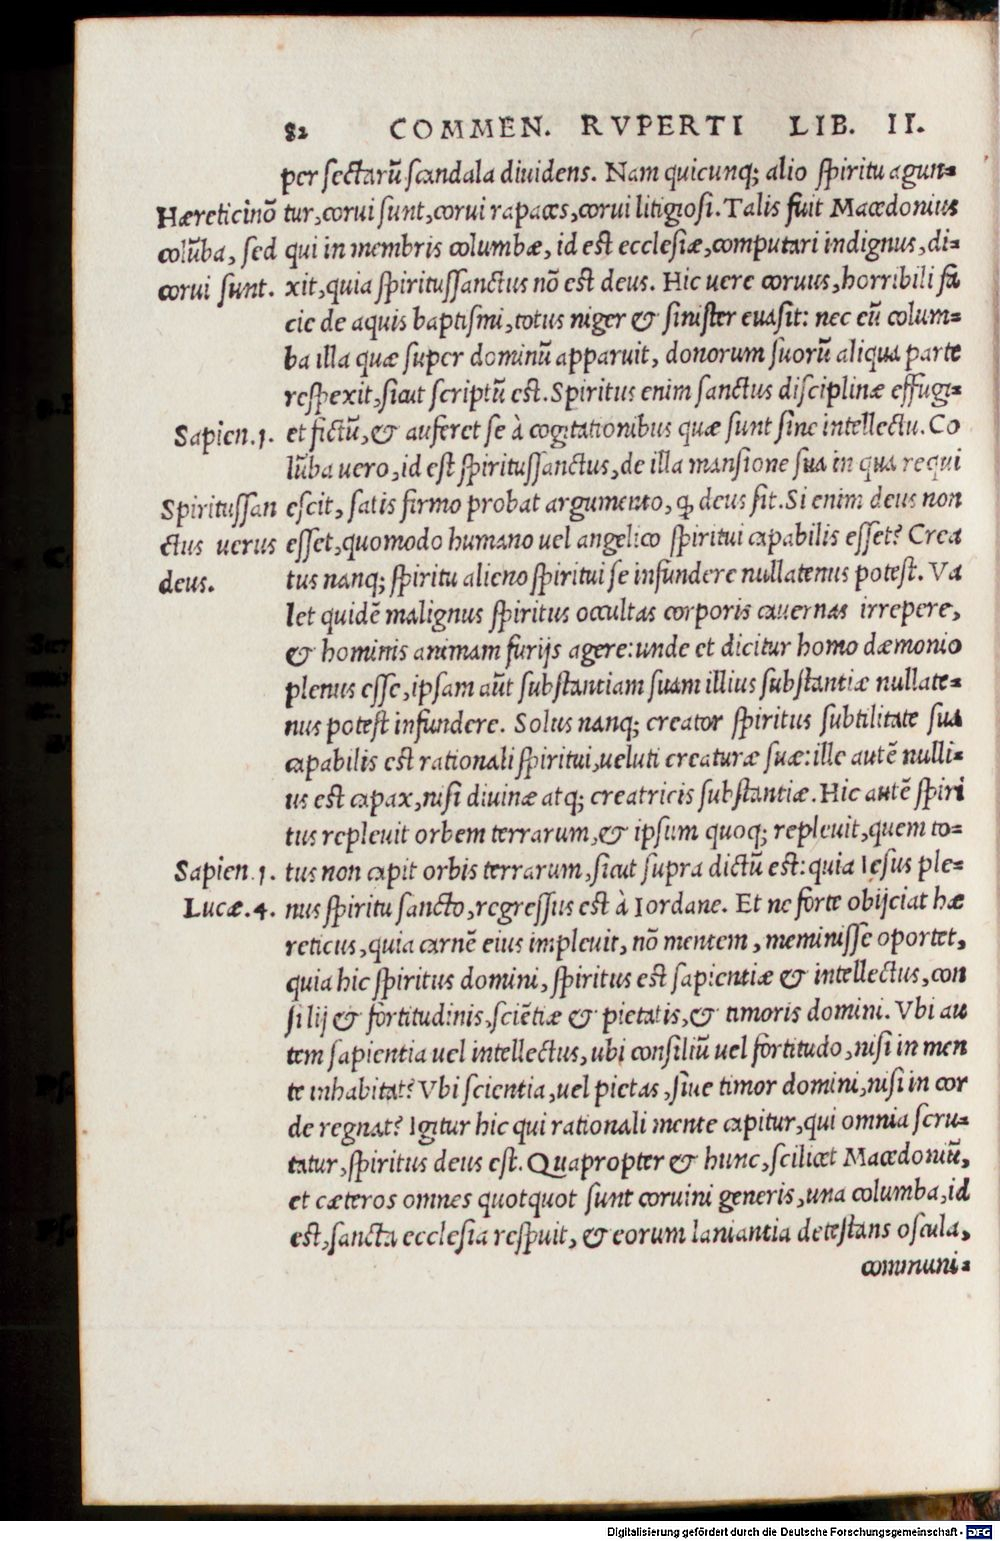 82 COMMEN. RVPERTI LIB. II.
per sectarū scandala diuidens. Nam quicunq; alio spiritu agun-
Hæretici nō
tur, corui sunt, corui rapaces, corui litigiosi. Talis fuit Macedonius
colūba, sed
qui in membris columbæ, id est ecclesiæ, computari indignus, di-
corui sunt.
xit, quia spiritussanctus nō est deus. Hic uere coruus, horribili fa
cie de aquis baptismi, totus niger & sinister euasit: nec eū colum-
ba illa quæ super dominū apparuit, donorum suorū aliqua parte
respexit, sicut scriptū est. Spiritus enim sanctus disciplinæ effugi-
Sapien. 1.
et fictū, & auferet se à cogitationibus quæ sunt sine intellectu. Co
lūba uero, id est spiritussanctus, de illa mansione sua in qua requi
Spiritussan
escit, satis firmo probat argumento, ꝙ deus sit. Si enim deus non
ctus uerus
esset, quomodo humano uel angelico spiritui capabilis esset? Crea
deus.
tus nanq; spiritu alieno spiritui se infundere nullatenus potest. Va
let quidē malignus spiritus occultas corporis cauernas irrepere,
& hominis animam furijs agere: unde et dicitur homo dæmonio
plenus esse, ipsam aūt substantiam suam illius substantiæ nullate-
nus potest infundere. Solus nanq; creator spiritus subtilitate sua
capabilis est rationali spiritui, ueluti creaturæ suæ: ille autē nulli-
us est capax, nisi diuinæ atq; creatricis substantiæ. Hic autē spiri
tus repleuit orbem terrarum, & ipsum quoq; repleuit, quem to-
Sapien. 1.
tus non capit orbis terrarum, sicut supra dictū est: quia Iesus ple-
Lucæ. 4.
nus spiritu sancto, regressus est à Iordane. Et ne forte obijciat hæ
reticus, quia carnē eius impleuit, nō mentem, meminisse oportet,
quia hic spiritus domini, spiritus est sapientiæ & intellectus, con
silij & fortitudinis, sciētiæ & pietatis, & timoris domini. Vbi au
tem sapientia uel intellectus, ubi consiliū uel fortitudo, nisi in men
te inhabitat? Vbi scientia, uel pietas, siue timor domini, nisi in cor
de regnat? Igitur hic qui rationali mente capitur, qui omnia scru-
tatur, spiritus deus est. Quapropter & hunc, scilicet Macedoniū,
et cæteros omnes quotquot sunt coruini generis, una columba, id
est, sancta ecclesia respuit, & eorum laniantia detestans oscula,
communi-
Digitalisierung gefördert durch die Deutsche Forschungsgemeinschaft - DFG